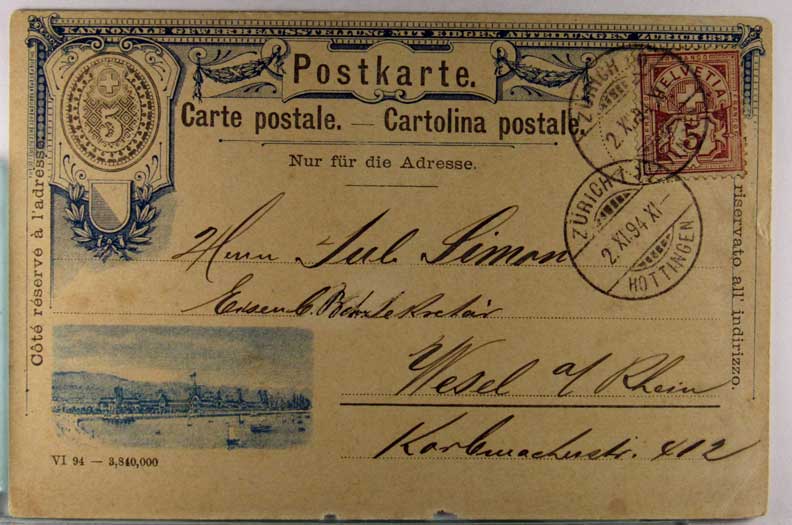 KANTONALE GEWERBEAUSSTELLUNG MIT EIDGEN. ABTEILUNGEN ZÜRICH 1894
5
Postkarte.
Carte postale. — Cartolina postale.
Nur für die Adresse.
Côté réservé à l'adresse.
riservato all' indirizzo.
HELVETIA
5
ZÜRICH
2. XI. 94
ZÜRICH
2. XI. 94 XI—
HOTTINGEN
Herrn Jul. Simon
Eisenb. Betr. Sekretär
Wesel a/Rhein
Korbmacherstr. 412
VI 94 — 3,840,000